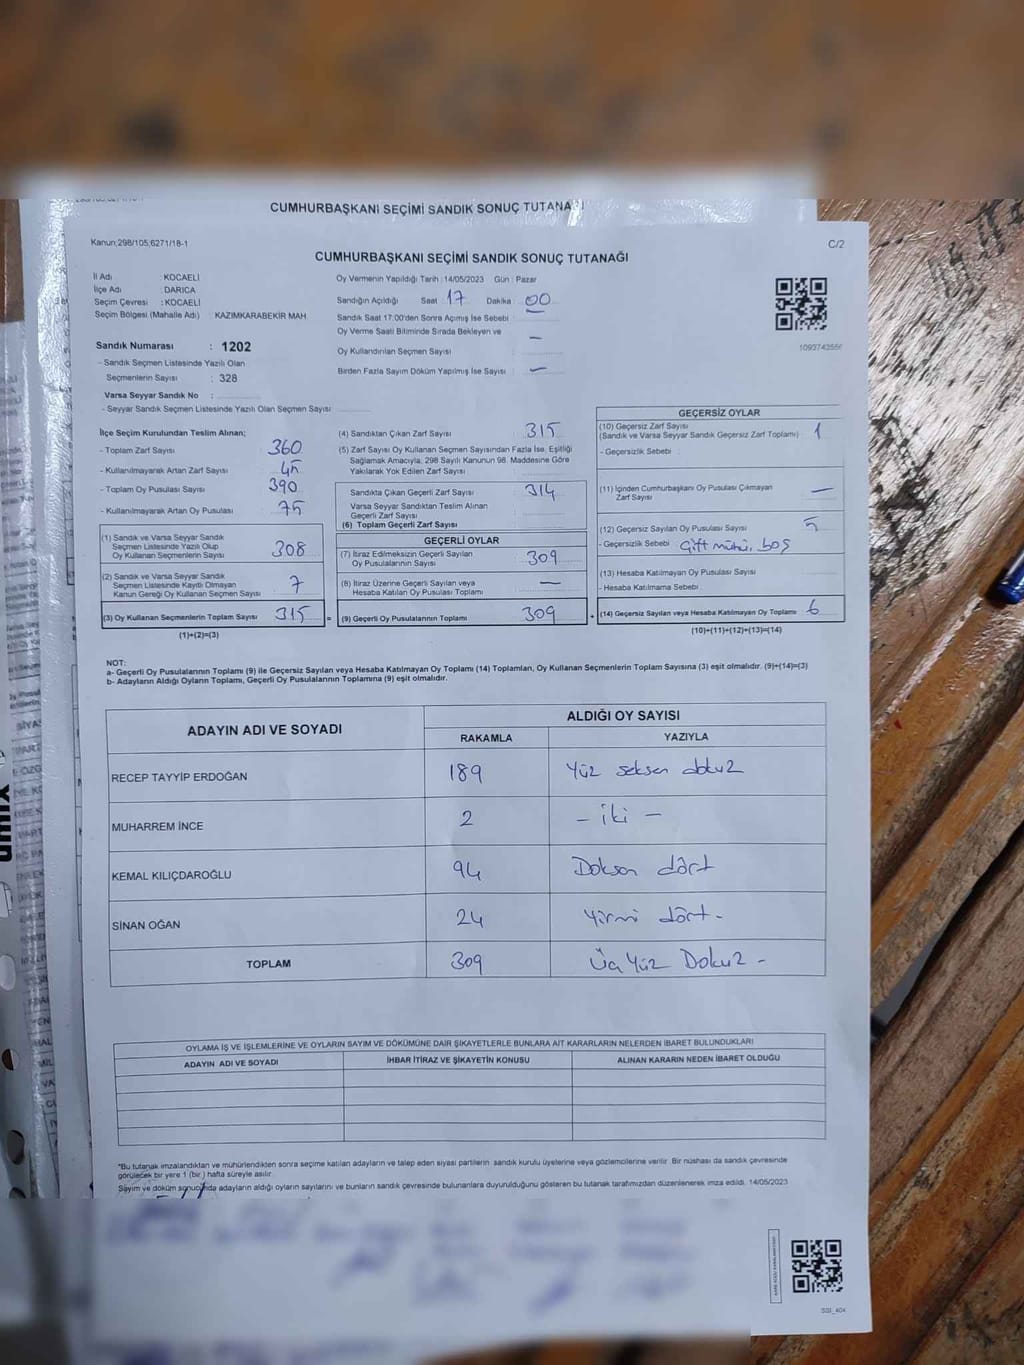 CUMHURBAŞKANI SEÇİMİ SANDIK SONUÇ TUTANA
Kanun,298/105,6271/18-1
C/2
CUMHURBAŞKANI SEÇİMİ SANDIK SONUÇ TUTANAĞI
İl Adı : KOCAELİ
İlçe Adı : DARICA
Seçim Çevresi : KOCAELİ
Seçim Bölgesi (Mahalle Adı) : KAZIMKARABEKİR MAH
Oy Vermenin Yapıldığı Tarih : 14/05/2023 Gün : Pazar
Sandığın Açıldığı Saat 17 Dakika : 00
Sandık Saat 17:00'den Sonra Açımış İse Sebebi
Oy Verme Saati Bitiminde Sırada Bekleyen ve
Oy Kullandırılan Seçmen Sayısı —
Birden Fazla Sayım Döküm Yapılmış İse Sayısı : —
Sandık Numarası : 1202
- Sandık Seçmen Listesinde Yazılı Olan
Seçmenlerin Sayısı : 328
Varsa Seyyar Sandık No :
- Seyyar Sandık Seçmen Listesinde Yazılı Olan Seçmen Sayısı
İlçe Seçim Kurulundan Teslim Alınan;
- Toplam Zarf Sayısı 360
- Kullanılmayarak Artan Zarf Sayısı 45
- Toplam Oy Pusulası Sayısı 390
- Kullanılmayarak Artan Oy Pusulası 75
(1) Sandık ve Varsa Seyyar Sandık
Seçmen Listesinde Yazılı Olup
Oy Kullanan Seçmenlerin Sayısı 308
(2) Sandık ve Varsa Seyyar Sandık
Seçmen Listesinde Kayıtlı Olmayan
Kanun Gereği Oy Kullanan Seçmen Sayısı 7
(3) Oy Kullanan Seçmenlerin Toplam Sayısı 315 =
(1)+(2)=(3)
(4) Sandıktan Çıkan Zarf Sayısı 315
(5) Zarf Sayısı Oy Kullanan Seçmen Sayısından Fazla İse, Eşitliği
Sağlamak Amacıyla, 298 Sayılı Kanunun 98. Maddesine Göre
Yakılarak Yok Edilen Zarf Sayısı
Sandıkta Çıkan Geçerli Zarf Sayısı 314
Varsa Seyyar Sandıktan Teslim Alınan
Geçerli Zarf Sayısı
(6) Toplam Geçerli Zarf Sayısı
GEÇERLİ OYLAR
(7) İtiraz Edilmeksizin Geçerli Sayılan
Oy Pusulalarının Sayısı 309
(8) İtiraz Üzerine Geçerli Sayılan veya
Hesaba Katılan Oy Pusulası Toplamı —
(9) Geçerli Oy Pusulalarının Toplamı 309 +
GEÇERSİZ OYLAR
(10) Geçersiz Zarf Sayısı
(Sandık ve Varsa Seyyar Sandık Geçersiz Zarf Toplamı) 1
- Geçersizlik Sebebi
(11) İçinden Cumhurbaşkanı Oy Pusulası Çıkmayan
Zarf Sayısı —
(12) Geçersiz Sayılan Oy Pusulası Sayısı 5
- Geçersizlik Sebebi Çift mühü, boş
(13) Hesaba Katılmayan Oy Pusulası Sayısı
- Hesaba Katılmama Sebebi
(14) Geçersiz Sayılan veya Hesaba Katılmayan Oy Toplamı 6
(10)+(11)+(12)+(13)=(14)
NOT:
a- Geçerli Oy Pusulalarının Toplamı (9) ile Geçersiz Sayılan veya Hesaba Katılmayan Oy Toplamı (14) Toplamları, Oy Kullanan Seçmenlerin Toplam Sayısına (3) eşit olmalıdır. (9)+(14)=(3)
b- Adayların Aldığı Oyların Toplamı, Geçerli Oy Pusulalarının Toplamına (9) eşit olmalıdır.
ADAYIN ADI VE SOYADI
ALDIĞI OY SAYISI
RAKAMLA YAZIYLA
RECEP TAYYİP ERDOĞAN 189 Yüz seksen dokuz
MUHARREM İNCE 2 - iki -
KEMAL KILIÇDAROĞLU 94 Doksan dört
SİNAN OĞAN 24 Yirmi dört -
TOPLAM 309 Üç Yüz Dokuz -
OYLAMA İŞ VE İŞLEMLERİNE VE OYLARIN SAYIM VE DÖKÜMÜNE DAİR ŞİKAYETLERLE BUNLARA AİT KARARLARIN NELERDEN İBARET BULUNDUKLARI
ADAYIN ADI VE SOYADI İHBAR İTİRAZ VE ŞİKAYETİN KONUSU ALINAN KARARIN NEDEN İBARET OLDUĞU
*Bu tutanak imzalandıktan ve mühürlendikten sonra seçime katılan adayların ve talep eden siyasi partilerin sandık kurulu üyelerine veya gözlemcilerine verilir. Bir nüshası da sandık çevresinde
görülecek bir yere 1 (bir) hafta süreyle asılır.
Sayım ve döküm sonucunda adayların aldığı oyların sayılarını ve bunların sandık çevresinde bulunanlara duyurulduğunu gösteren bu tutanak tarafımızdan düzenlenerek imza edildi. 14/05/2023